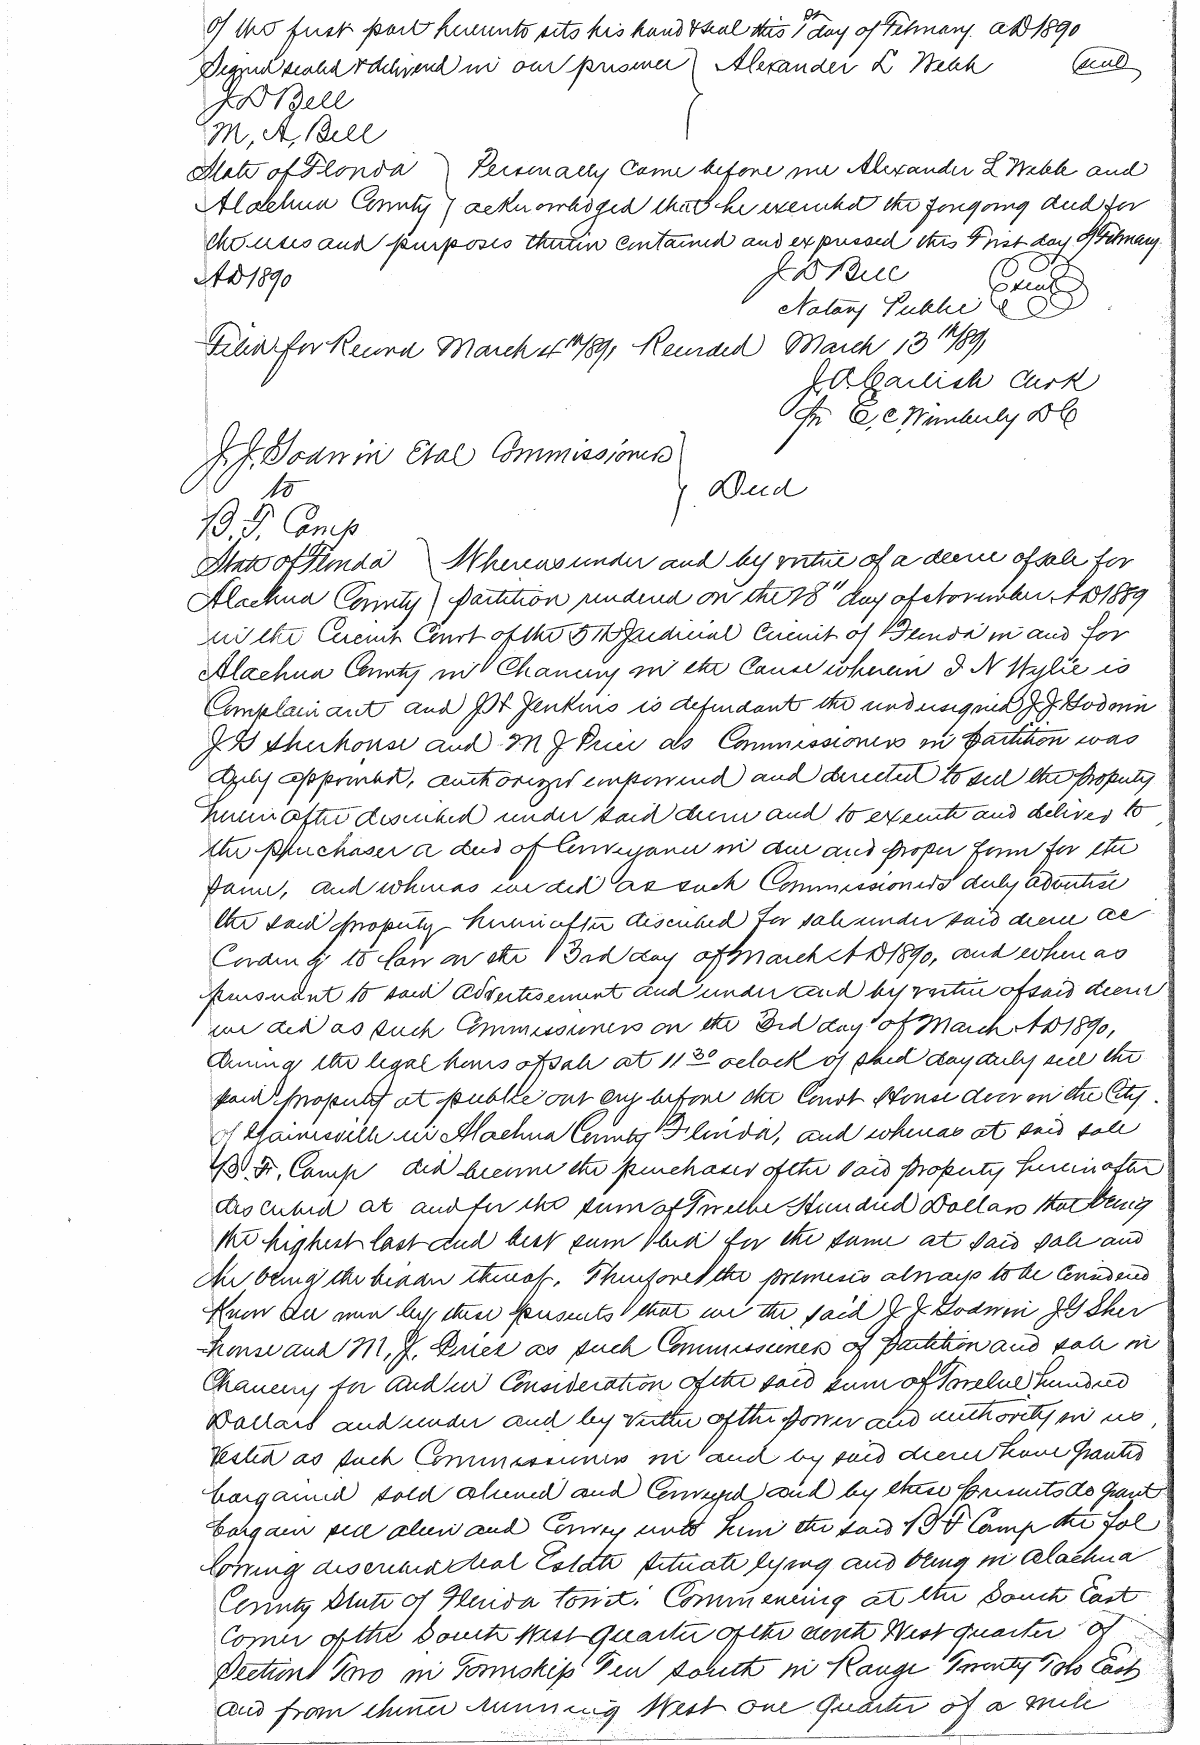 of the first part hereunto sets his hand & seal this 1st day of February AD 1890
Signed sealed & delivered in our presence } Alexander L Webb (seal)
J D Bell
M, A, Bell
State of Florida } Personally Came before me Alexander L Webb and
Alachua County } acknowledged that he executed the foregoing deed for
the uses and purposes therein contained and expressed this First day of February
AD 1890 J D Bell (seal)
Notary Public
Filed for Record March 4th/89, Recorded March 13th/89,
J A Carlisle Clerk
Pr E, C, Wimberly D C
J. J. Godwin Etal Commissioners }
to } Deed
B. F. Camp
State of Florida } Whereas under and by virtue of a decree of sale for
Alachua County } partition rendered on the 28" day of November AD 1889
in the Circuit Court of the 5th Judicial Circuit of Florida in and for
Alachua County in Chancery in the Cause wherein I N Wylie is
Complainant and J H Jenkins is defendant the undersigned J J Godwin
J G Sherhouse and M J Price as Commissioners in partition was
duly appointed, authorized empowered and directed to sell the property
hereinafter described under said decree and to execute and deliver to
the purchaser a deed of Conveyance in due and proper form for the
same, and whereas we did as such Commissioners duly advertise
the said property hereinafter discribed for sale under said decree ac
Cording to law on the 3rd day of March AD 1890, and whereas
pursuant to said advertisement and under and by virtue of said decree
we did as such Commissioners on the 3rd day of March AD 1890,
during the legal hours of sale at 11 30 oclock of said day duly sell the
said property at public out cry before the Court House door in the City
of Gainesville in Alachua County Florida, and whereas at said sale
B. F. Camp did become the purchaser of the said property hereinafter
discribed at and for the sum of Twelve Hundred Dollars that being
the highest last and best sum bid for the same at said sale and
he being the bidder thereof. Therefore the premises always to be Considered
Know all men by these presents that we the said J J Godwin J G Sher
house and M. J. Price as such Commissioners of partition and sale in
Chancery for and in Consideration of the said sum of Twelve hundred
Dollars and under and by virtue of the power and authority in us
Vested as such Commissioners in and by said decree have granted
bargained sold aliened and Conveyed and by these presents do grant
bargain sell alien and Convey unto him the said B F Camp the fol
lowing discribed Real Estate situate lying and being in Alachua
County State of Florida towit: Commencing at the South East
Corner of the South West quarter of the North West quarter of
Section Two in Township Ten South in Range Twenty Two East
and from thence running West one quarter of a mile